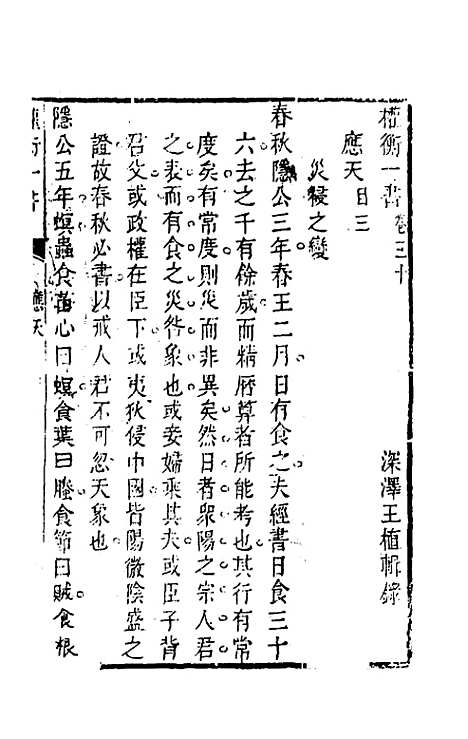 權衡一書卷三十 深澤王植輯錄
應天目三
災祲之變
春秋隱公三年春王二月日有食之夫經書日食三十
六去之千有餘歲而精曆算者所能考也其行有常
度矣有常度則災而非異矣然日者眾陽之宗人君
之表而有食之災咎象也或妾婦乘其夫或臣子背
君父或政權在臣下或夷狄侵中國皆陽微陰盛之
證故春秋必書以戒人君不可忽天象也
隱公五年螟蟲食苗心曰螟食葉曰螣食節曰賊食根
權衡一書 應天